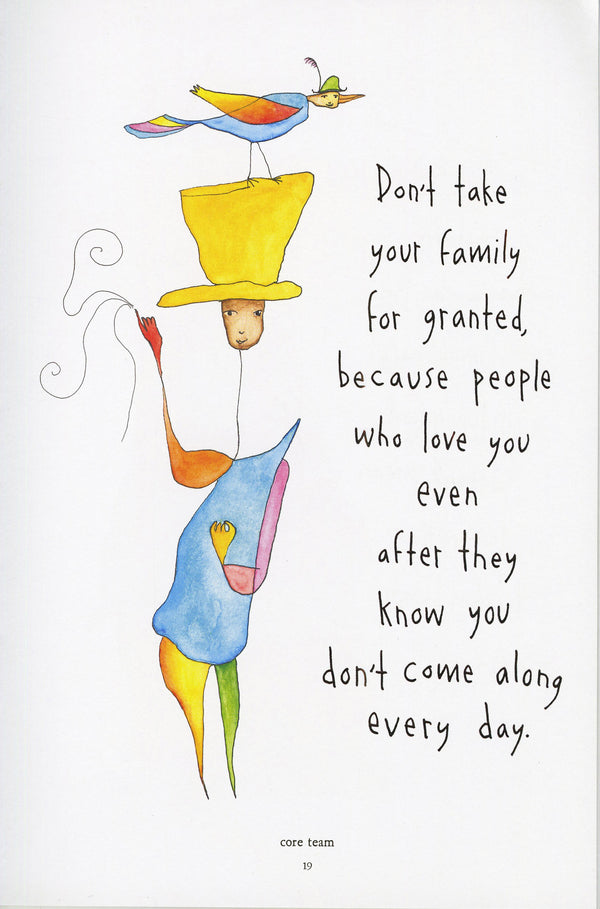 Don't take
your family
for granted,
because people
who love you
even
after they
know you
don't come along
every day.
core team
19